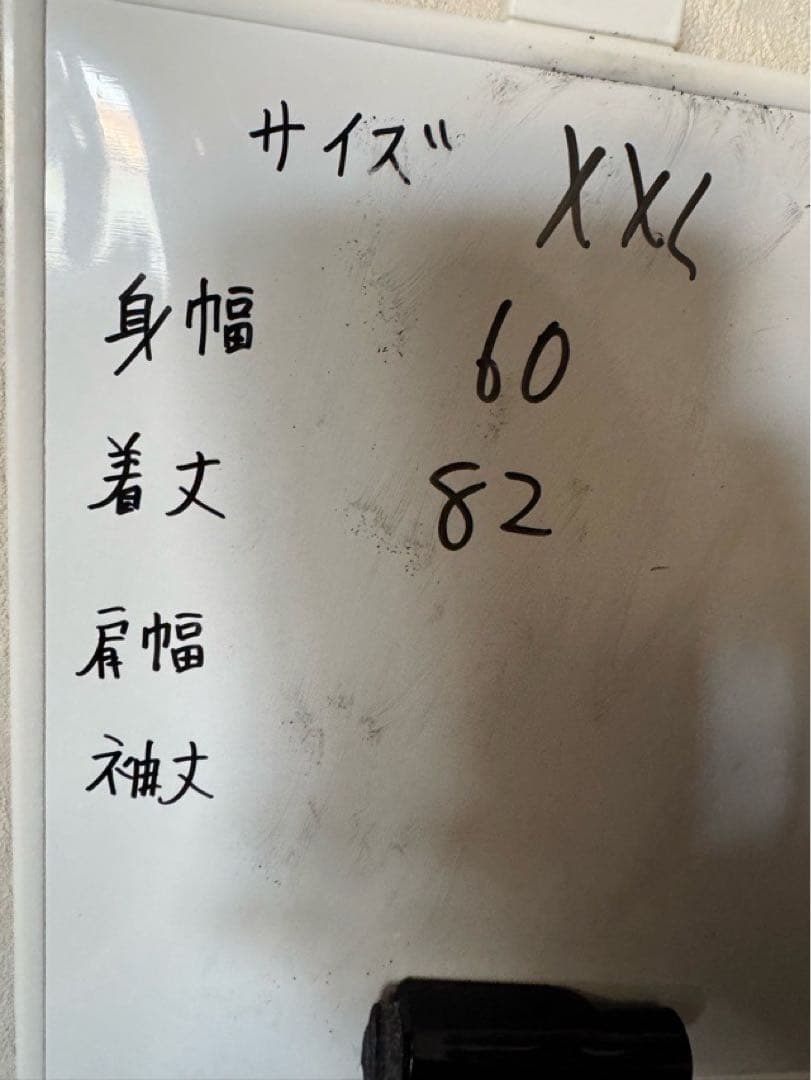 サイズ XXL
身幅 60
着丈 82
肩幅
袖丈